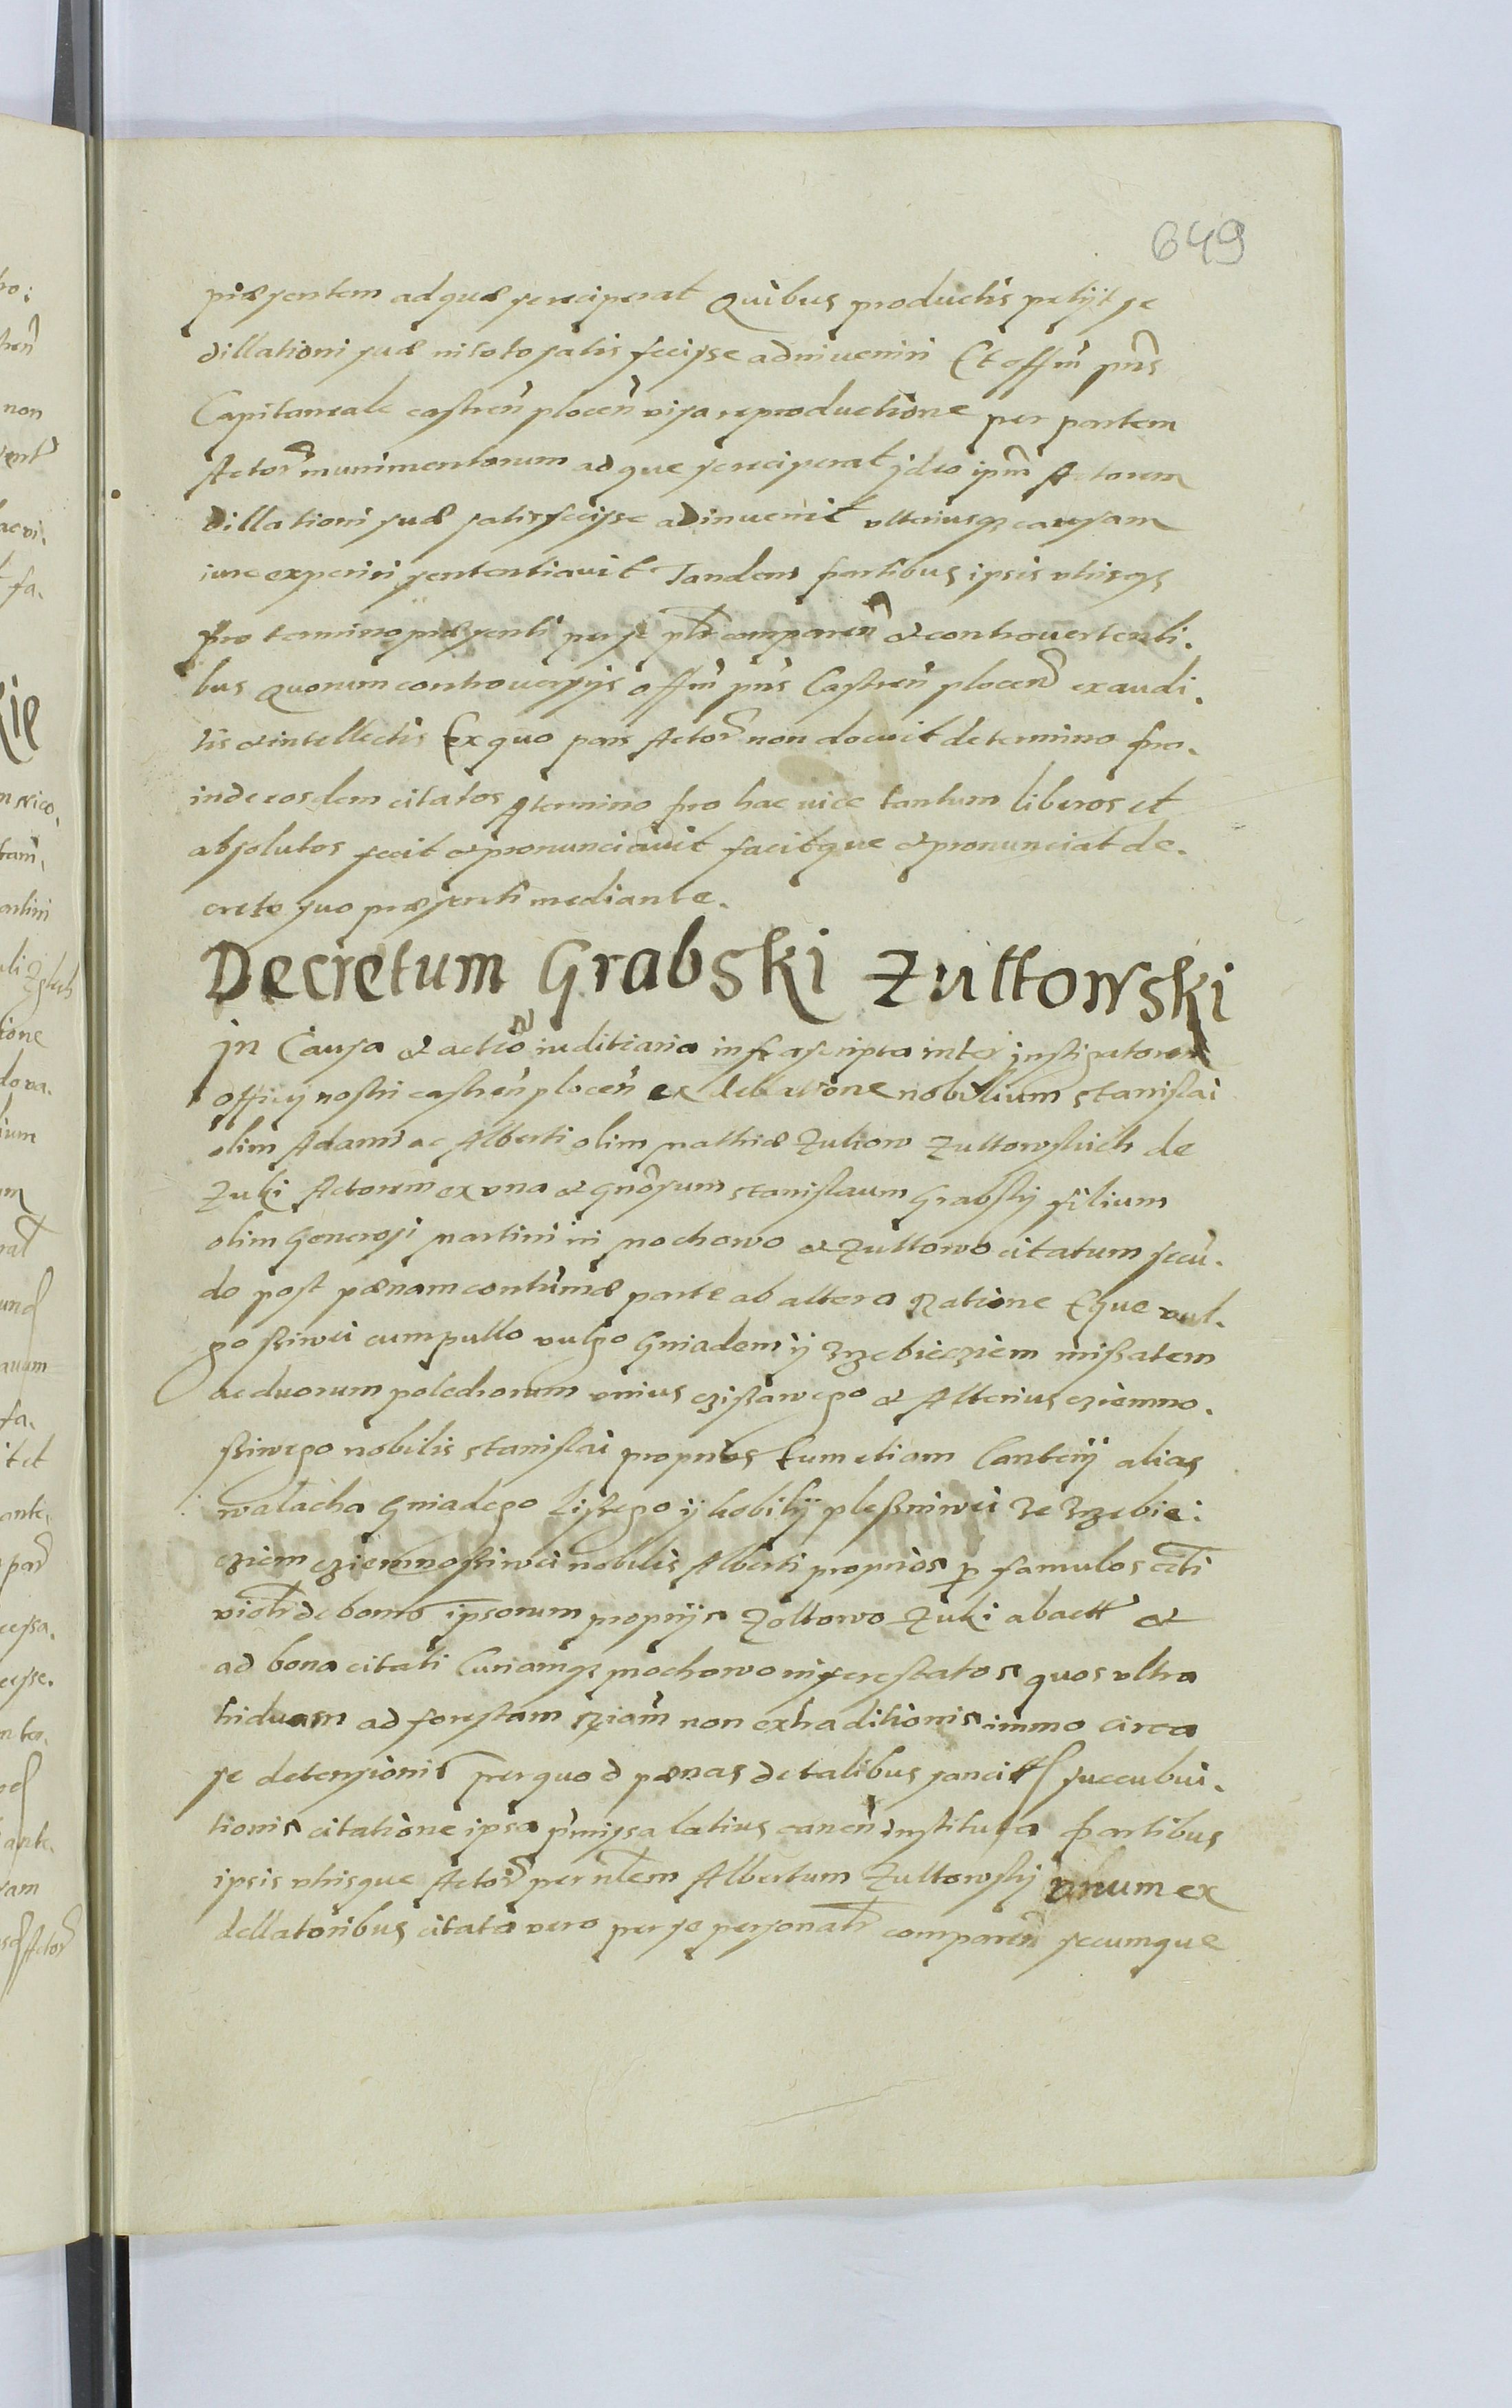 649
præsentem ad quæ se reciperat Quibus productis petijt se
dillationi suæ in toto satis fecisse adinveniri Et offm pñs
Capitaneale castren̄ plocen̄ visa reproductione per partem
Actor̄ munimentorum ad que se reciperat ideo ipm̄ Actorem
dillationi suæ satisfecisse adinuenit vlteriusqz causam
iure experiri sententiauit Tandem partibus ipsis vtrisqz
pro termino præsenti per se plr̄ comparen̄ & controuertenti.
bus Quorum controuersijs offm̄ pñs Castren̄ plocen̄ exaudi.
tis & intellectis Ex quo pars Actor̄ non docuit de termino pro.
inde eosdem citatos A termino pro hac uice tantum liberos et
absolutos fecit & pronunciauit facitque & pronunciat de.
creto suo præsenti mediante.
Decretum Grabski Zultowski
In Causa & actio͠n iuditiaria infrascripta inter instigatorem
officij nostri castren̄ plocen̄ ex dellatione nobilium Stanislai
olim Adami ac Alberti olim Mathiæ Zukow Zultowskich de
Zuki Actorem ex vna & Gnõsum Stanislaum Grabskj filium
olim Generosi Martini in Mochowo & Zultowo citatum secū.
do post pænam contumæ parte ab altera ratione Eque vul.
go siwei cum pullo vulgo Gniadem ij zrzebieczięm missatem
ac duorum poledrorum vnius czisawego & Alterius cziemno.
siwego nobilis Stanislai proprios tum etiam Canterij alias
walacha Gniadego lisego ij kobilÿ plesniwei ze zrzebie:
cziem cziemnosiwei nobilis Alberti proprios per famulos citi
violr̄ de bonis ipsorum proprijs Zoltowo Zuki abactt &
ad bona citati Curiamqz Mochowo in ferestatos quos vltra
triduum ad forestam rziam̄ non extraditionis immo circa
se detensionis per quod pænas de talibus sancitt succubui.
tionis citatione ipsa p̄missa latius canen̄ instituta Partibus
ipsis vtrisque Actor̄ per nlem Albertum Zultowskj vnum ex
dellatoribus citata vero per se personalr̄ comparen̄ secumque